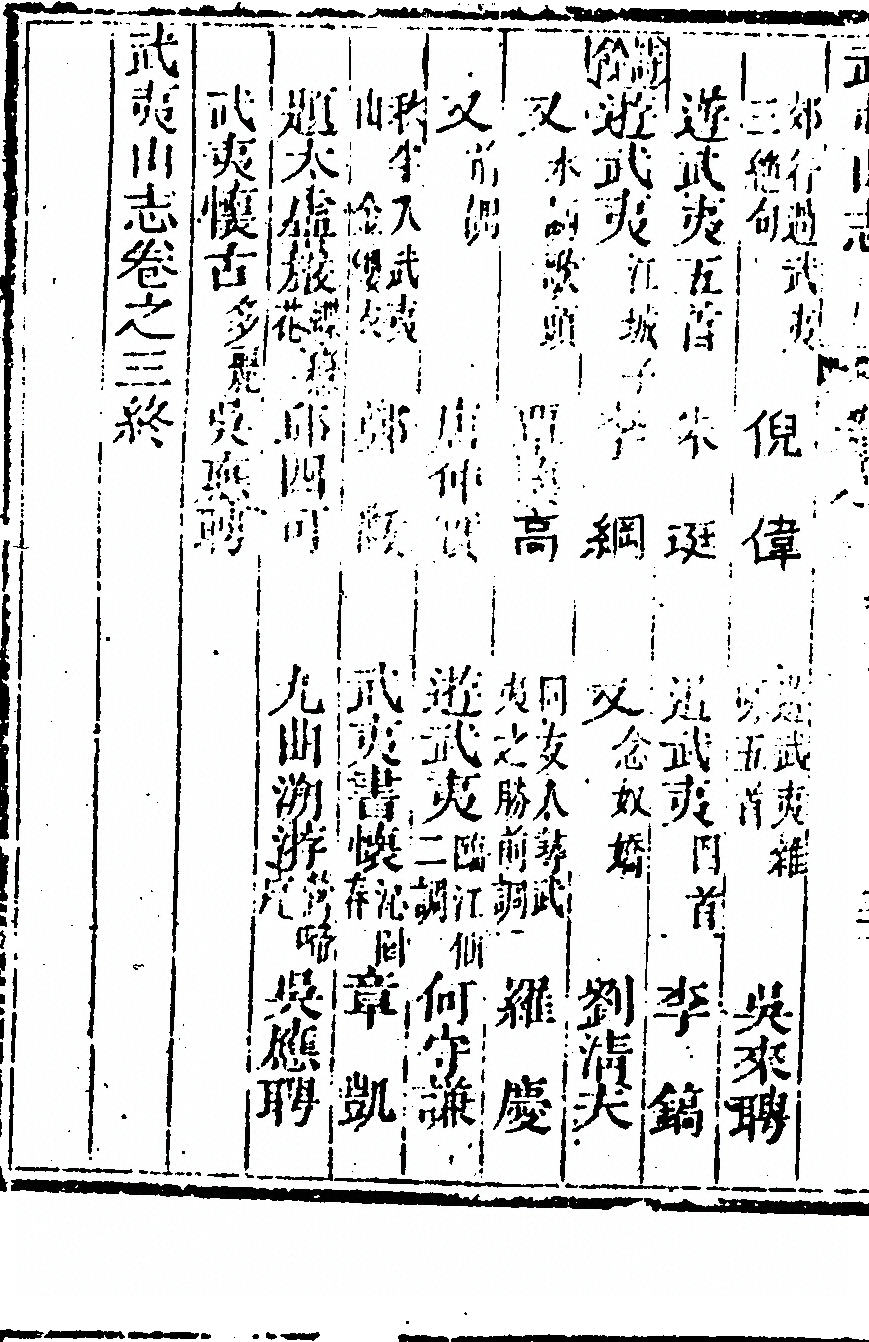 武夷山志
郊行過武夷三絶句 倪偉 遊武夷雜 五首 吳來聘
遊武夷五首 朱珽 遊武夷四首 李鎬
詩餘 遊武夷江城子 李綱 又念奴嬌 劉清夫
又水調歌頭 高 同友人琴武夷之勝前調 羅慶
又前調 仲 遊武夷臨江仙二調 何守謙
秋坐入武夷山金縷衣 鄭 武夷書懷沁園春 章凱
題太虛巖蝶戀花 邱四可 九曲溯游鶯啼 吳應聘
武夷懷古多麗 吳應聘
武夷山志卷之三終